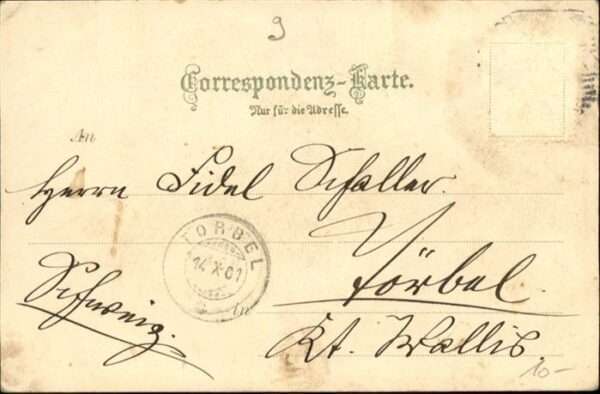 9
Correspondenz-Karte.
Nur für die Adresse.
An
Herrn Fidel Schaller.
TÖRBEL
14 X 01
Törbel
in
Schweiz.
Kt. Wallis.
10-